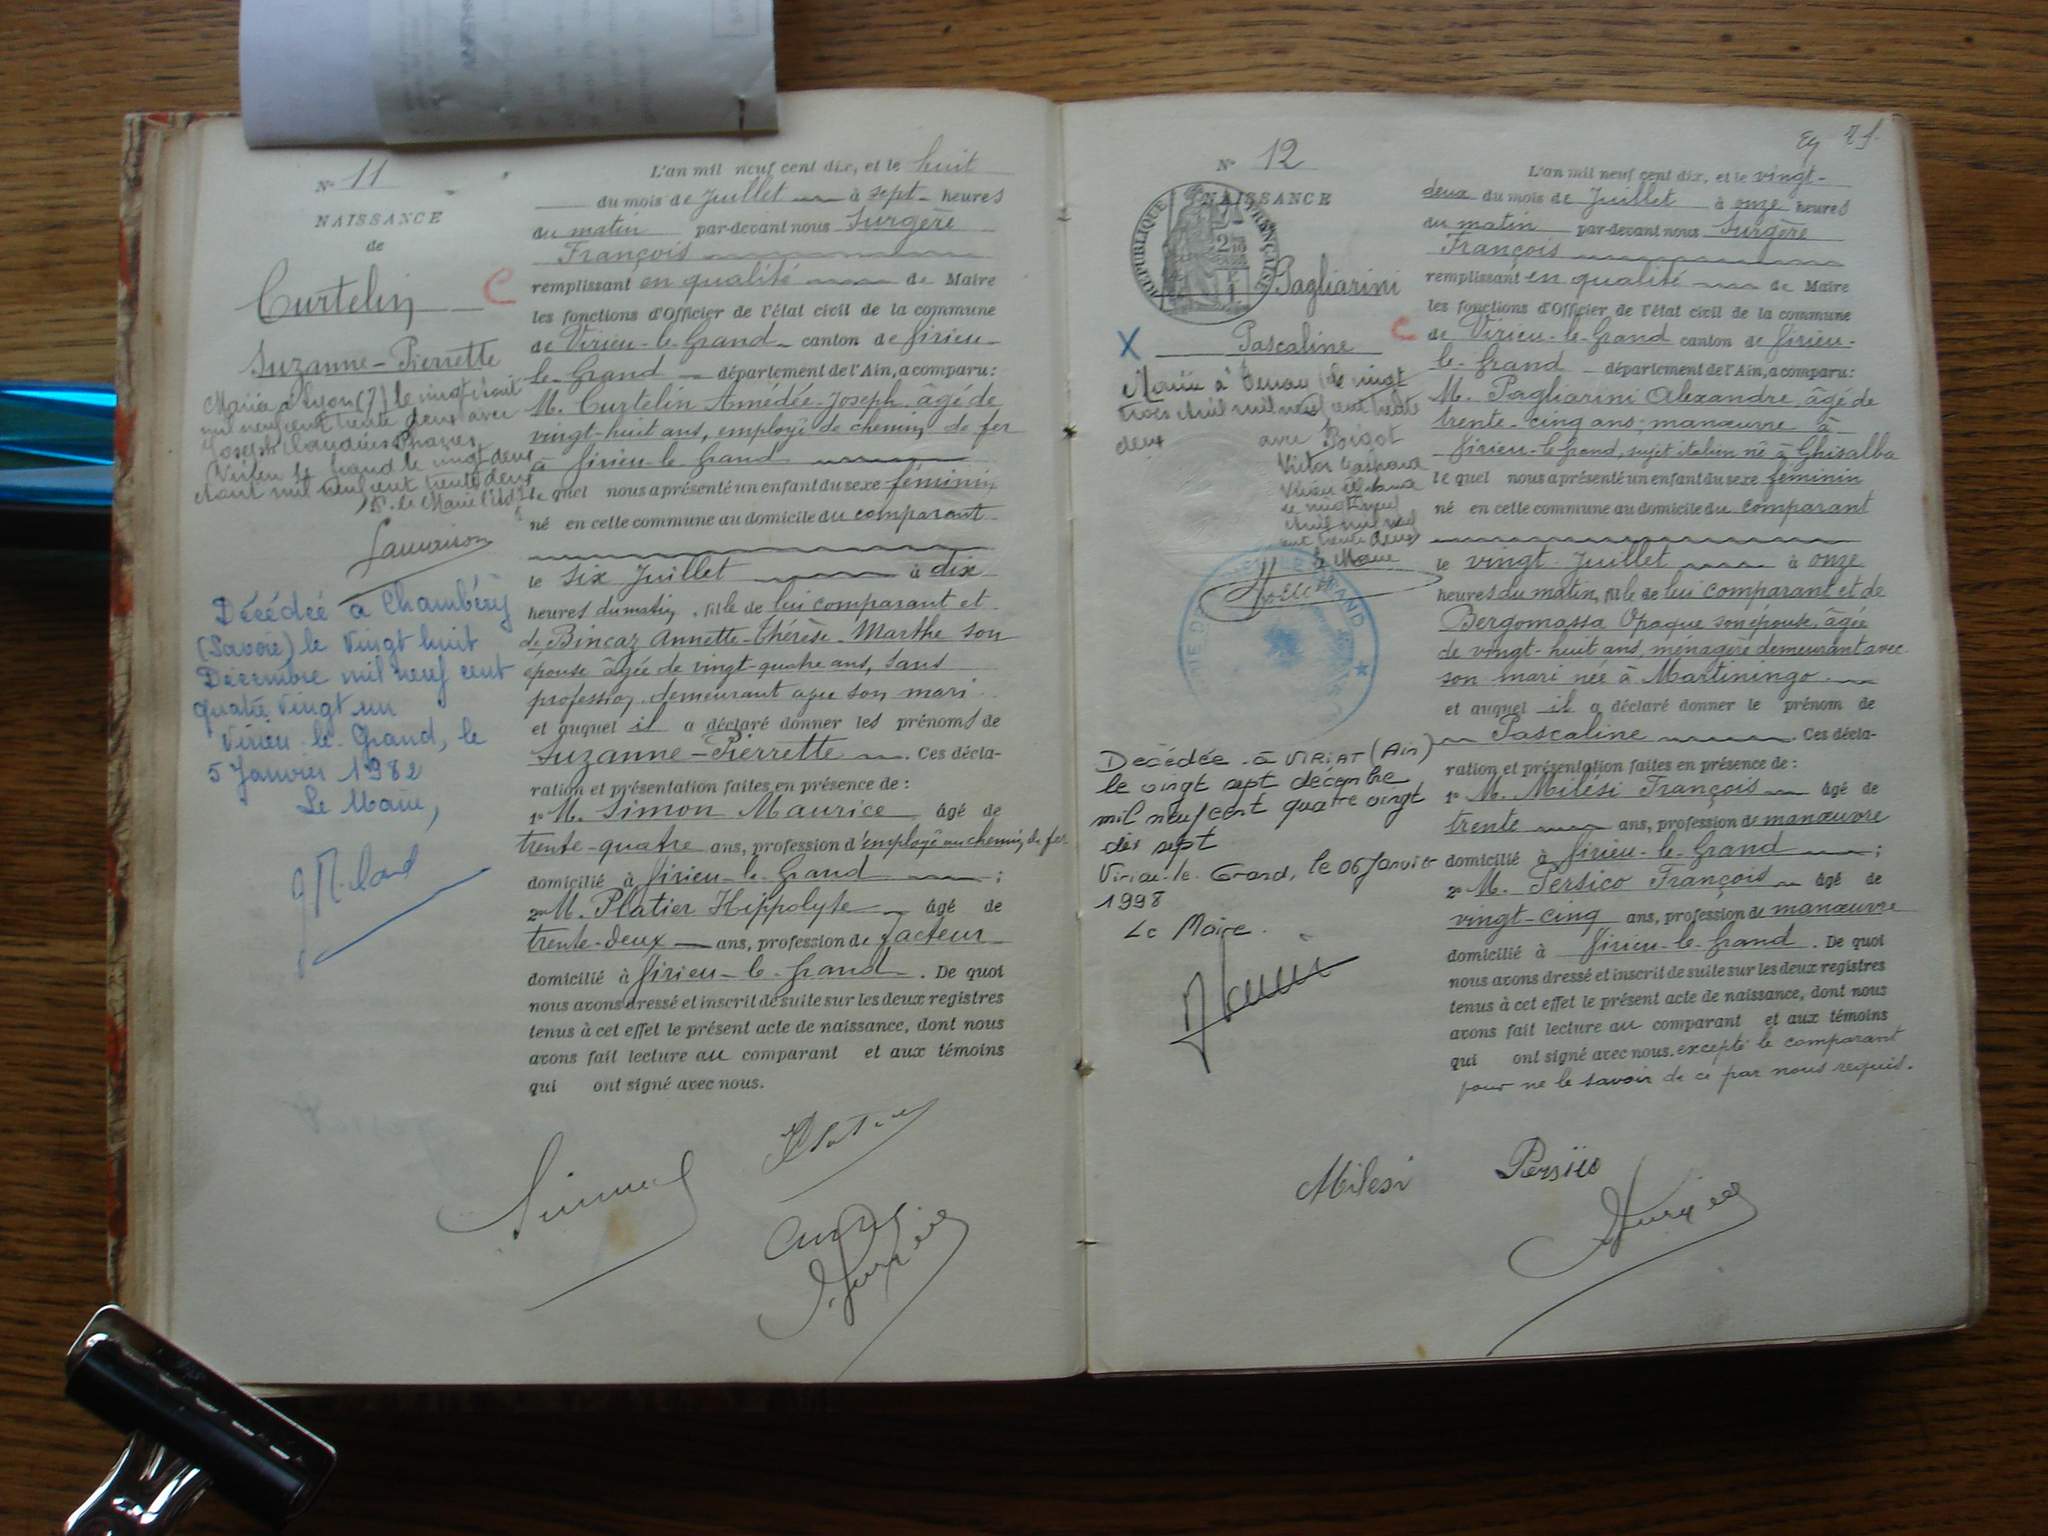 N° 11
NAISSANCE
de
Curtelin
Suzanne-Pierrette
C
Mariée à Lyon (7) le vingt huit
mil neuf cent trente deux avec
Joseph Claudius
Virieu le Grand le vingt deux
Août mil neuf cent trente deux
P. le Maire l'Adj.
Décédée à Chambéry
(Savoie) le Vingt huit
Décembre mil neuf cent
quatre vingt un
Virieu-le-Grand, le
5 Janvier 1982
Le Maire,
L'an mil neuf cent dix, et le huit
du mois de Juillet à sept heures
du matin par-devant nous Surgère
François
remplissant en qualité de Maire
les fonctions d'Officier de l'état civil de la commune
de Virieu-le-Grand canton de Virieu-
le-Grand département de l'Ain, a comparu :
M. Curtelin Amédée-Joseph, âgé de
vingt-huit ans, employé de chemin de fer
à Virieu-le-Grand
le quel nous a présenté un enfant du sexe féminin
né en cette commune au domicile du comparant
le six Juillet à dix
heures du matin, fille de lui comparant et
de Bincaz Annette-Thérèse-Marthe son
épouse âgée de vingt-quatre ans, sans
profession, demeurant avec son mari
et auquel il a déclaré donner les prénoms de
Suzanne-Pierrette. Ces décla-
ration et présentation faites en présence de :
1° M. Simon Maurice âgé de
trente-quatre ans, profession d'employé au chemin de fer
domicilié à Virieu-le-Grand ;
2° M. Platier Hippolyte âgé de
trente-deux ans, profession de facteur
domicilié à Virieu-le-Grand. De quoi
nous avons dressé et inscrit de suite sur les deux registres
tenus à cet effet le présent acte de naissance, dont nous
avons fait lecture au comparant et aux témoins
qui ont signé avec nous.
N° 12
NAISSANCE
RÉPUBLIQUE FRANÇAISE
Pagliarini
Pascaline
X
C
Mariée à le vingt
trois Avril mil neuf cent trente
deux avec Bigot
Victor
Virieu le Grand
le vingt
Avril mil neuf
cent trente deux
le Maire
Décédée à VIRIAT (Ain)
le vingt sept décembre
mil neuf cent quatre vingt
dix sept
Virieu-le-Grand, le 06 Janvier
1998
Le Maire.
L'an mil neuf cent dix, et le vingt-
deux du mois de Juillet à onze heures
du matin par-devant nous Surgère
François
remplissant en qualité de Maire
les fonctions d'Officier de l'état civil de la commune
de Virieu-le-Grand canton de Virieu-
le-Grand département de l'Ain, a comparu :
M. Pagliarini Alexandre, âgé de
trente-cinq ans, manœuvre à
Virieu-le-Grand, sujet italien né à Ghisalba
le quel nous a présenté un enfant du sexe féminin
né en cette commune au domicile du comparant
le vingt Juillet à onze
heures du matin, fille de lui comparant et de
Bergomassa Opaque son épouse, âgée
de vingt-huit ans, ménagère demeurant avec
son mari née à Martiningo
et auquel il a déclaré donner le prénom de
Pascaline. Ces décla-
ration et présentation faites en présence de :
1° M. Milési François âgé de
trente ans, profession de manœuvre
domicilié à Virieu-le-Grand ;
2° M. Persico François âgé de
vingt-cinq ans, profession de manœuvre
domicilié à Virieu-le-Grand. De quoi
nous avons dressé et inscrit de suite sur les deux registres
tenus à cet effet le présent acte de naissance, dont nous
avons fait lecture au comparant et aux témoins
qui ont signé avec nous. excepté le comparant
pour ne le savoir de ce par nous requis.
Milesi
Persico